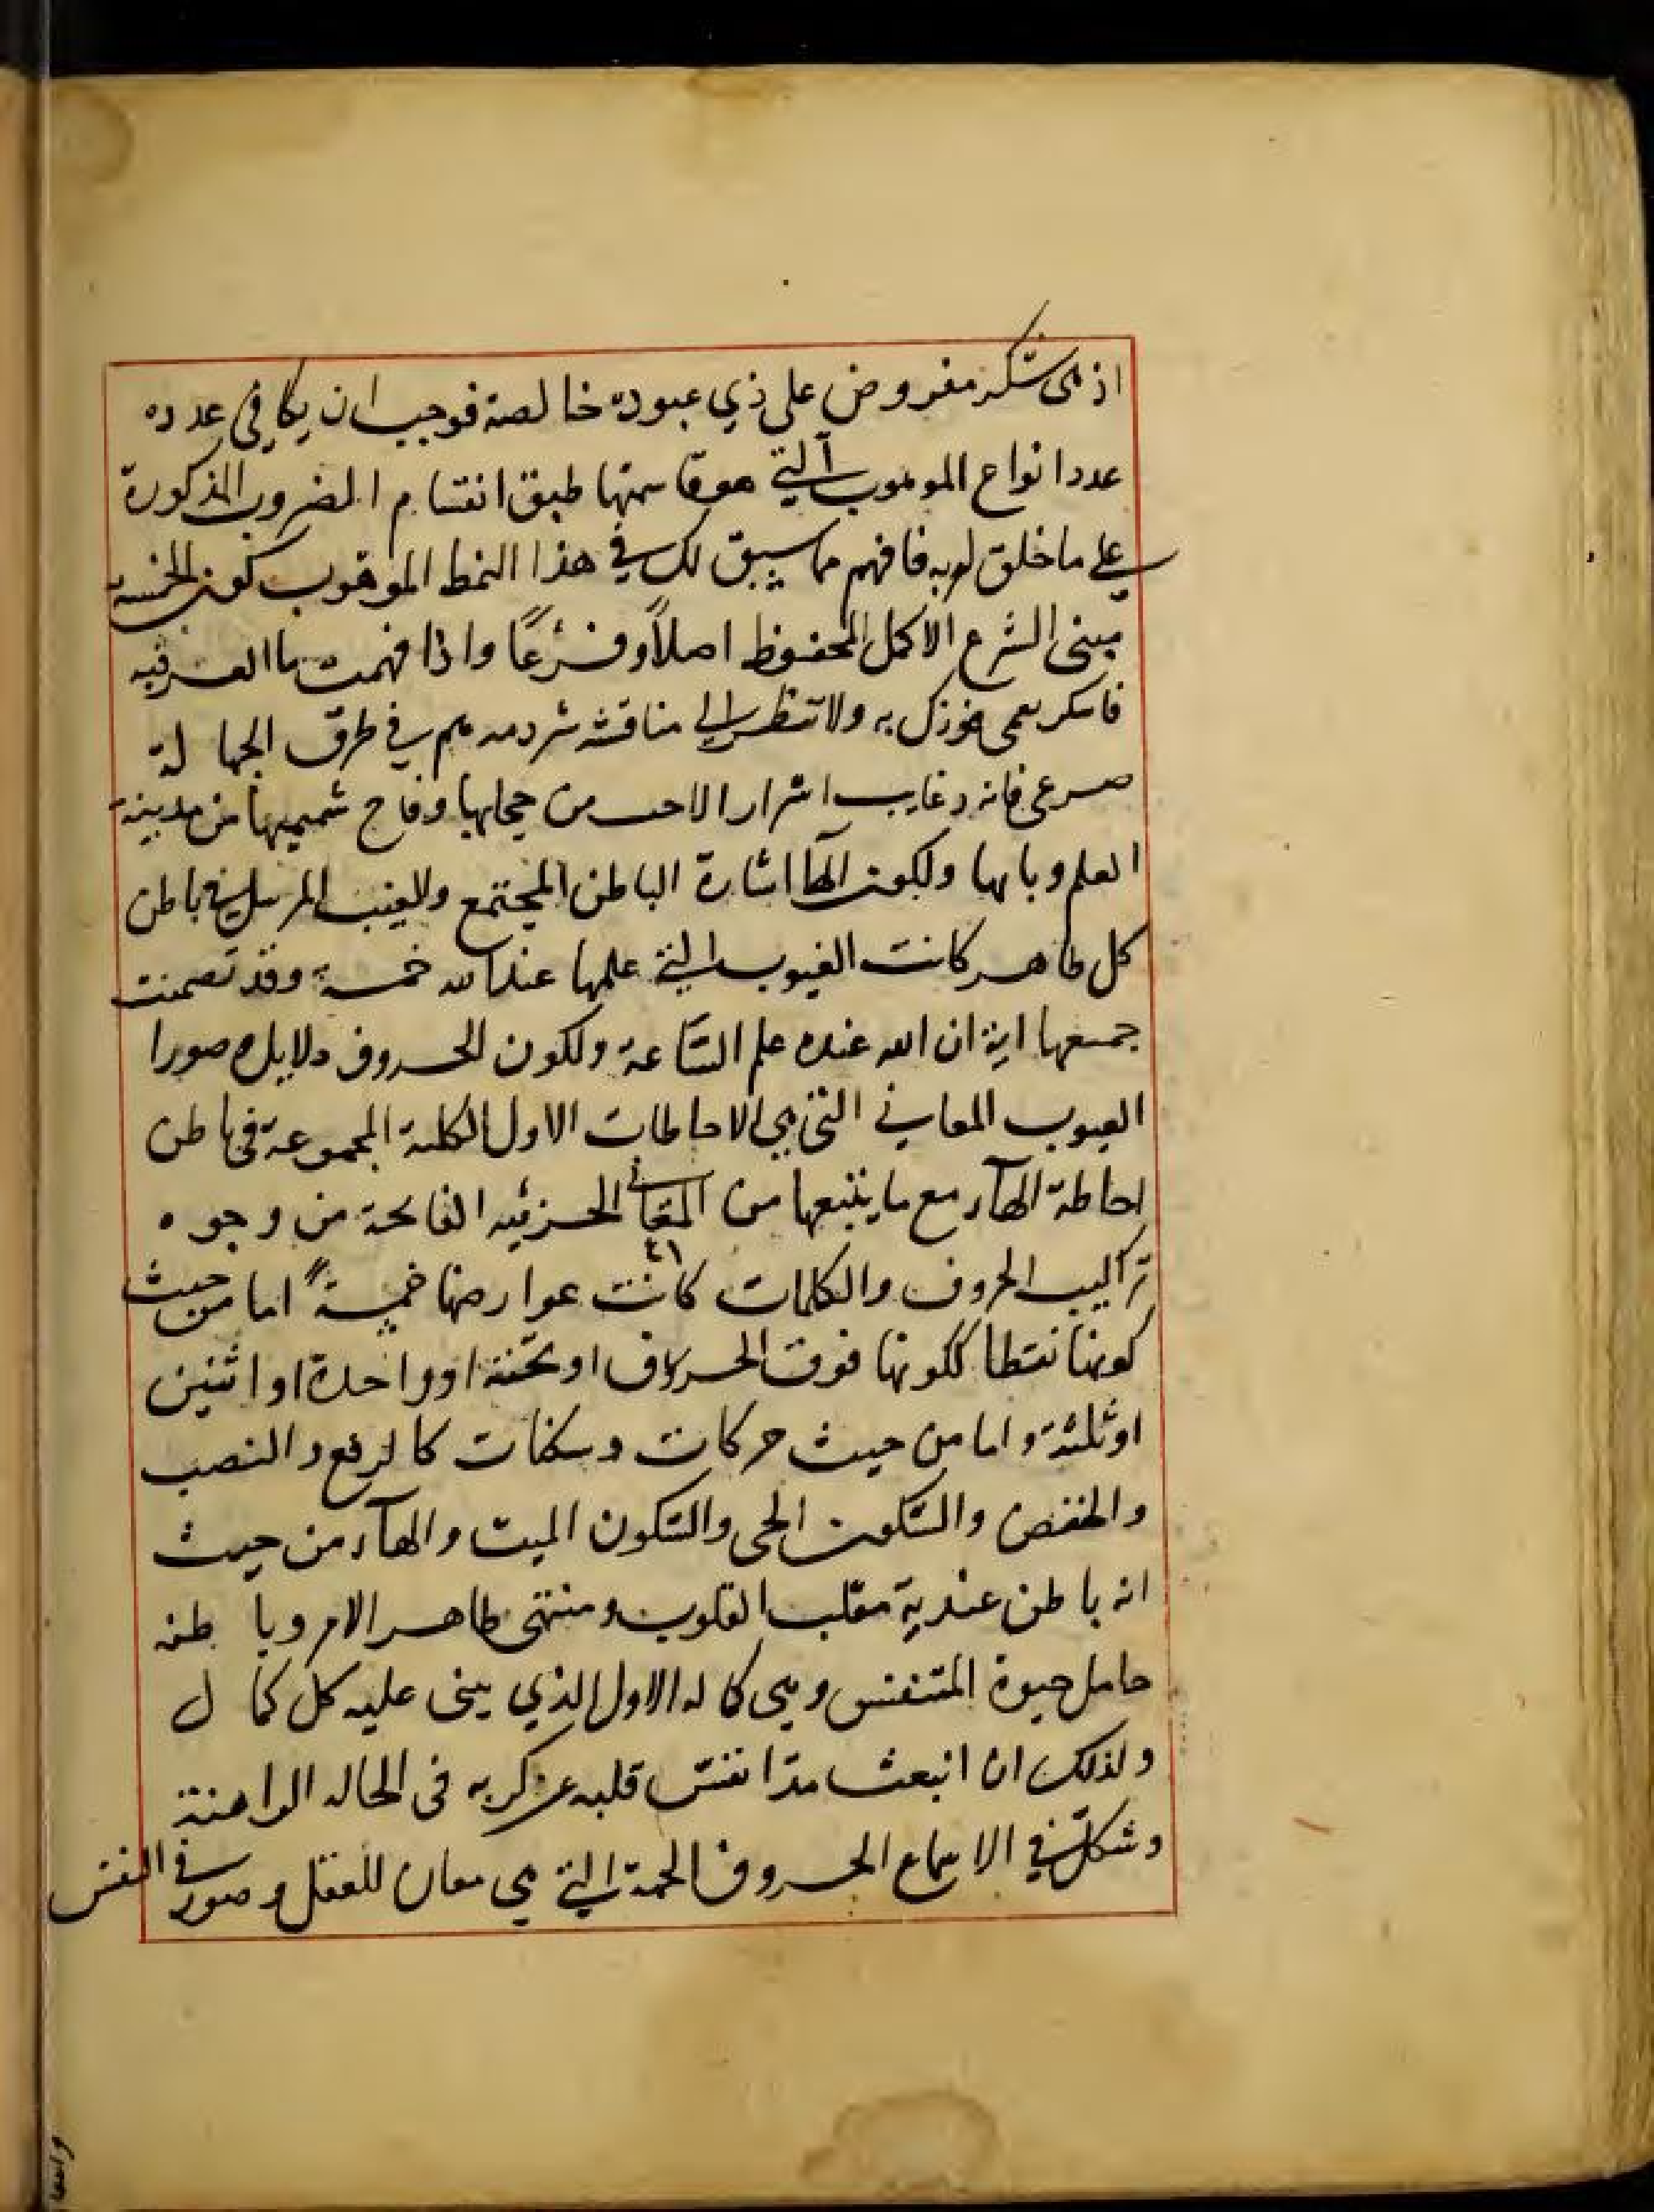 اذ هى شكر مفروض على ذي عبودة خالصة فوجب ان يكافى عدده
عدد انواع الموهوب التي هو قاسمها طبق انقسام المضروب المذكورة
على ما خلق له به فافهم ما سيق لك في هذا النمط الموهوب كون الخمسة
مبنى الشرع الاكمل المحفوظ اصلاً وفرعًا واذا فهمت ما
فاسكر ولا تنظر الى مناقشة شرذمة هم في طرق الجهالة
صرعى فانه من حجابها وفاح شميمها من مدينة
العلم وبابها ولكون الهآ اشارة الباطن المجتمع وللغيب المرسل في باطن
كل ظاهر كانت الغيوب التي علمها عند الله خمسة وقد تضمنت
جميعها اية ان الله عنده علم السّاعة ولكون الحروف دلايل صورا
الغيوب المعاني التي هي الاحاطات الاول الكلية المجموعة فى باطن
احاطة الهآء مع ما يتبعها من المعاني الجزئيه الفاتحة من وجوه
تراكيب الحروف والكلمات كانت عوارضها خمسةً اما من حيث
كونها نقطا ككونها فوق الحروف او تحته او واحدة او اثنين
او ثلثة واما من حيث حركات وسكنات كالرفع والنصب
والخفض والسّكون الحى والسّكون الميت والهآء من حيث
انه باطن عندية مقلب القلوب ومنتهى ظاهر الامر وباطنه
حامل حيوة المتنفس وهى كماله الاول الذي يبنى عليه كل كمال
ولذلك ان انبعث مدّا نفسّ قلبه عن كربه فى الحاله الراهنة
وشكلّ في الاسماع الحروف الجمة التي هي معان للعقل وصور في النفس